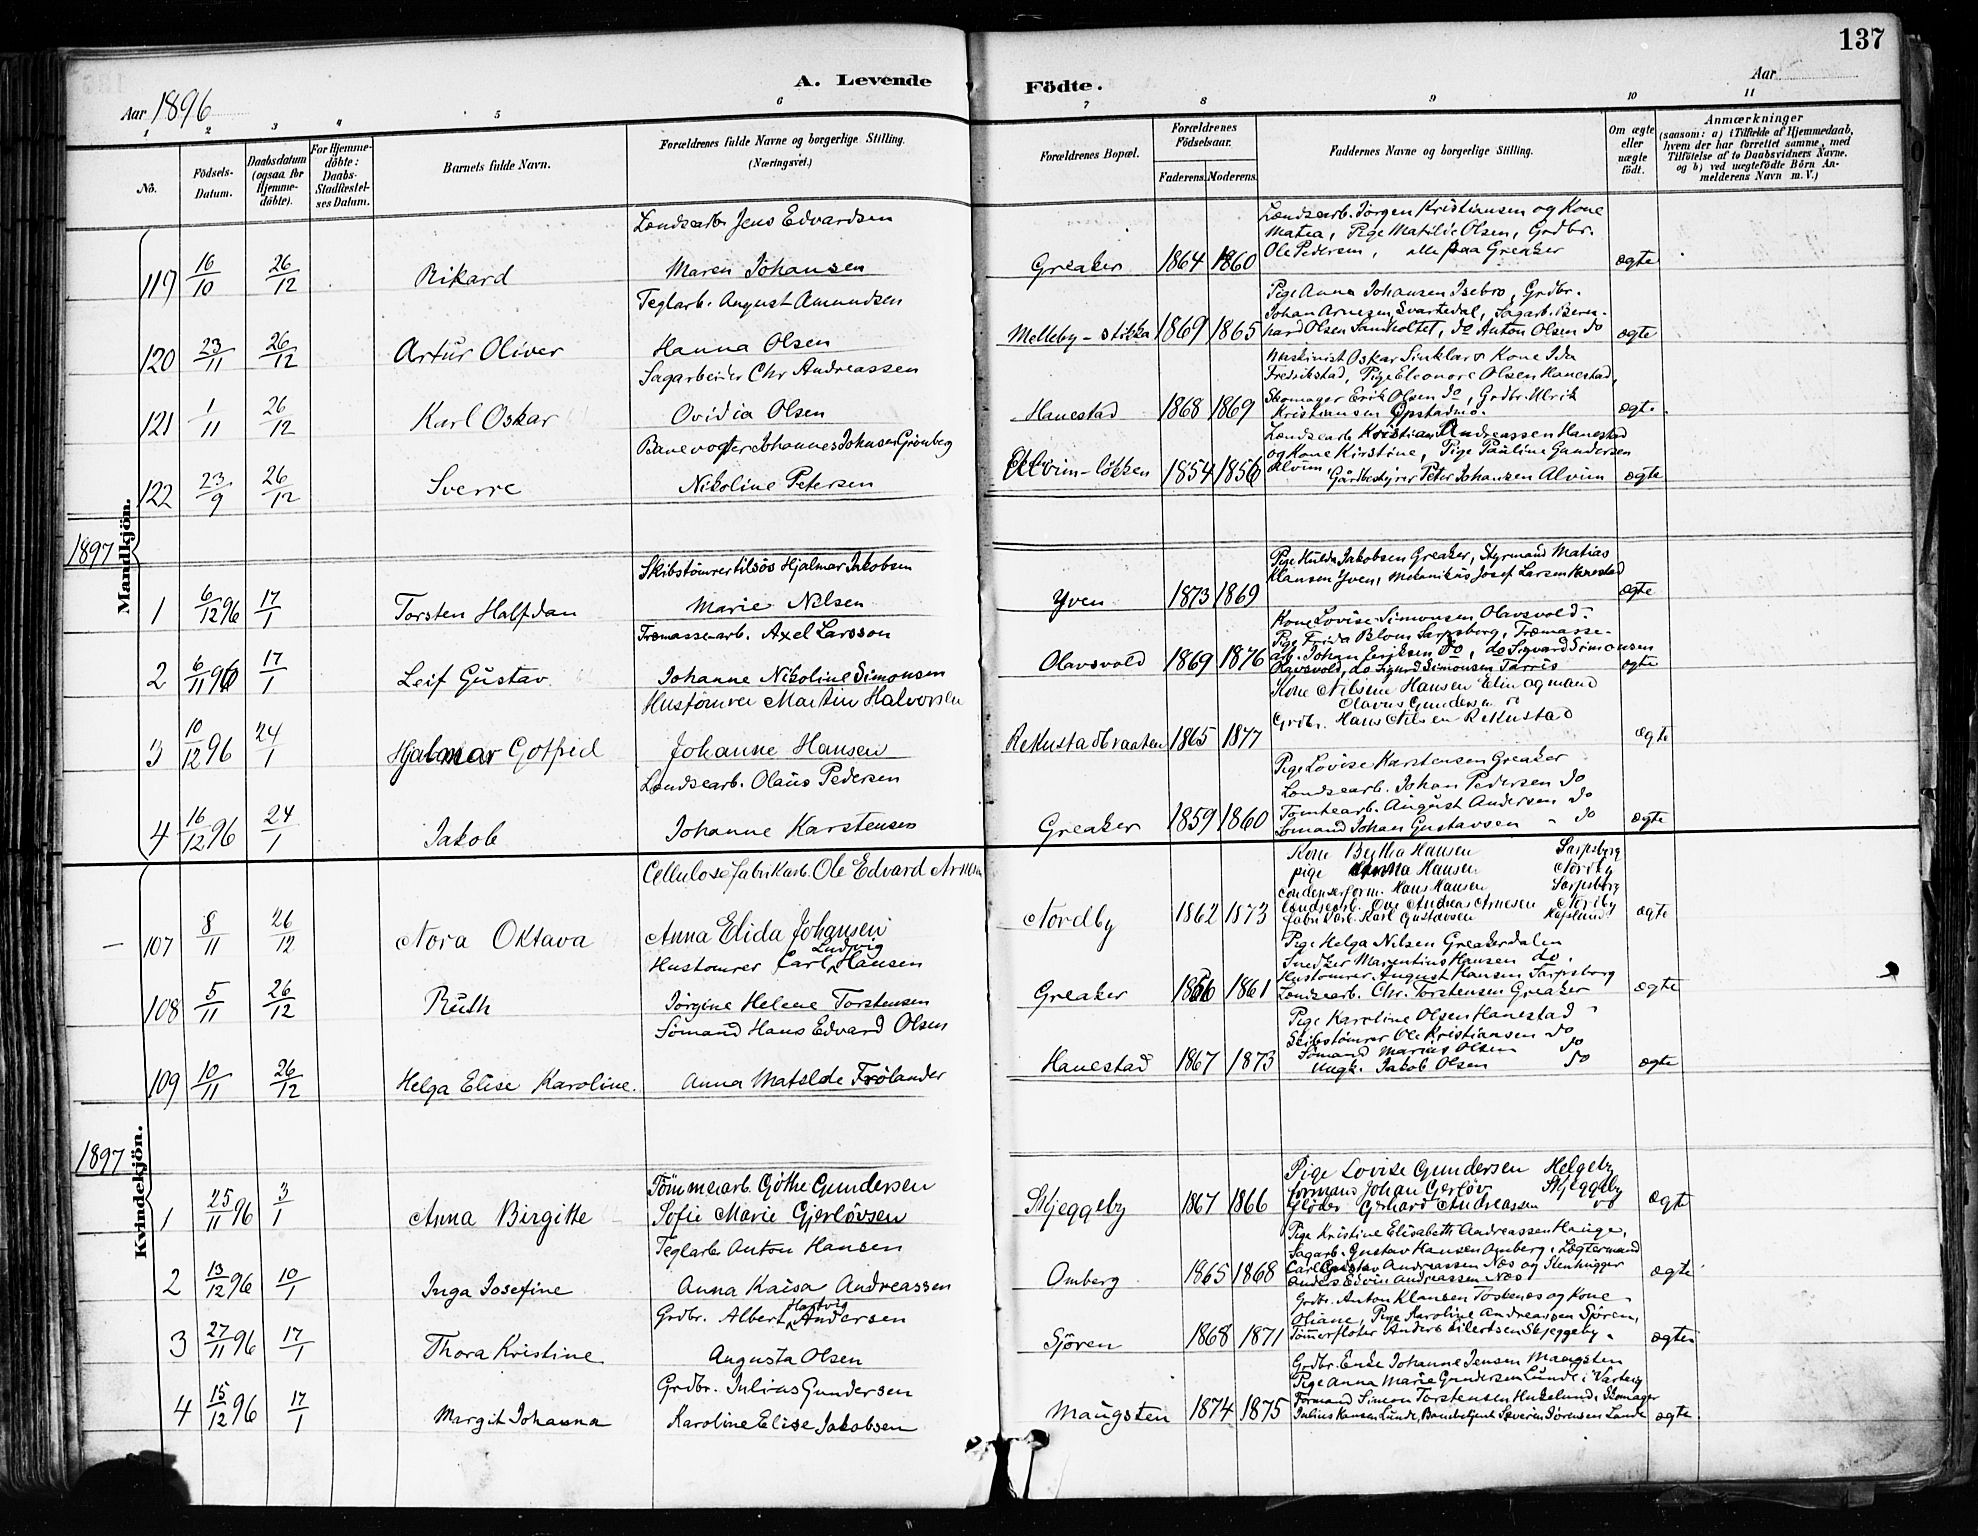 137
A. Levende Födte.
Aar 1896
Aar
1 2 3 4 5 6 7 8 9 10 11
No.
Födsels-Datum.
Daabsdatum (ogsaa for Hjemme-döbte).
For Hjemme-döbte: Daabs-Stadfæstel-ses Datum.
Barnets fulde Navn.
Forældrenes fulde Navne og borgerlige Stilling. (Næringsvei.)
Forældrenes Bopæl.
Forældrenes Födselsaar.
Faderens. Moderens.
Faddernes Navne og borgerlige Stilling.
Om ægte eller uægte födt.
Anmærkninger
(saasom: a) i Tilfælde af Hjemmedaab, hvem der har forrettet samme, med Tilföielse af to Daabsvidners Navne. og b) ved uægtefödte Börn An-melderens Navn m. V.)
Mandkjön.
Landsearb. Jens Edvardsen
119 16/10 26/12 Rikard Maren Johansen Greaker 1864 1860
Lændsearb. Jörgen Kristiansen og Kone
Matea, Pige Matilde Olsen, Grdbr.
Ole Pedersen, alle paa Greaker ægte
Teglarb. August Amundsen
120 23/11 26/12 Artur Oliver Hanna Olsen Melleby-stikka 1869 1865
Pige Anna Johansen Isebro, Grdbr.
Johan Arnesen Svartedal, Sagarb. Bern-
hard Olsen Sandholtet, do Anton Olsen do ægte
Sagarbeider Chr Andreassen
121 1/11 26/12 Karl Oskar Ovidia Olsen Hanestad 1868 1869
Maskinist Oskar Sinklar & Kone Ida
Fredrikstad, Pige Eleonore Olsen Hanestad,
Skomager Erik Olsen do, Grdbr. Ulrik
Kristiansen Opstadmo. ægte.
Banevogter Johannes Johnsen Grönberg
122 23/9 26/12 Sverre Nikoline Petersen Alvim-lökken 1854 1856
Lændsearb. Kristian Andreassen Hanestad
og Kone Kirstine, Pige Pauline Gundersen
Alvim, Gårdbestyrer Peter Johansen Alvim ægte
1897
Skibstömrer tilsös Hjalmar Jakobsen
1 6/12 96 17/1 Torsten Halfdan Marie Nilsen Yven 1873 1869
Pige Hulda Jakobsen Greaker, Styrmand Matias
Klausen Yven, Mekanikus Josef Larsen Hanestad ægte
Træmassearb. Axel Larsson
2 6/11 96 17/1 Leif Gustav Johanne Nikoline Simonsen Olavsvold 1869 1876
Kone Lovise Simonsen Olavsvold.
Pige Frida Blom Sarpsborg, Træmasse-
arb. Johan Eriksen do, do Sigvard Simonsen
Olavsvold, do Sigurd Simonsen Tarris ægte
Hustömrer Martin Halvorsen
3 10/12 96 24/1 Hjalmar Gotfred Johanne Hansen Rekustadbraaten 1865 1877
Kone Nilsine Hansen Elin og mand
Olavus Gundersen do
Grdbr. Hans Nilsen Rekustad ægte
Landsearb. Olaus Pedersen
4 16/12 96 24/1 Jakob Johanne Karstensen Greaker 1859 1860
Pige Lovise Karstensen Greaker
Landsearb. Johan Pedersen do
Tomtearb. August Andersen do
Sömand Johan Gustavsen " do ægte
Kvindekjön.
Cellulosefabrikarb. Ole Edvard Arnesen
107 8/11 26/12 Nora Oktava Anna Elida Johansen Nordby 1862 1873
Kone Bertha Hansen Sarpsborg
pige Hansen Nordby
Condenserform. Hans Hansen Sarpsborg
Landsearb. Ole Andreas Arnesen Nordby
Fabrikarb. Karl Gustavsen ægte
Hustömrer Carl Ludvig Hansen
108 5/11 26/12 Ruth Jörgine Helene Torstensen Greaker 1856 1861
Pige Helga Nilsen Greakerdalen
Snedker Marentius Hansen do.
Hustömrer August Hansen Sarpsborg
Lændsearb. Chr. Torstensen Greaker ægte
Sömand Hans Edvard Olsen
109 10/11 26/12 Helga Elise Karoline. Anna Matilde Frölander Hanestad 1867 1873
Pige Karoline Olsen Hanestad
Skibstömrer Ole Kristiansen do
Sömand Marius Olsen do
Ungk. Jakob Olsen do ægte
1897
Tömmerarb. Göthe Gundersen
1 25/11 96 3/1 Anna Birgitte Sofie Marie Gjerlövsen Skjeggeby 1867 1866
Pige Lovise Gundersen Helgeby
formand Johan Gerlöv Skjeggeby
flöder Gerhard Andreassen do ægte
Teglarb. Anton Hansen
2 13/12 96 10/1 Inga Josefine Anna Kaisa Andreassen Omberg 1865 1868
Pige Kristine Elisabeth Andreassen Hauge,
Sagarb. Gustav Hansen Omberg, Lægtermand
Carl Gustav Andreassen Næs og Stenhugger
Anders Edvin Andreassen Næs ægte
Grdbr. Albert Hartvig Andersen
3 27/11 96 17/1 Thora Kristine Augusta Olsen Sjören 1868 1871
Grdbr. Anton Klausen Tosknes og Kone
Oliane, Pige Karoline Andreasen Sjören,
Tömmerfloter Anders Eilertsen Skjeggeby. ægte
Grdbr. Julius Gundersen
4 15/12 96 17/1 Margit Johanna Karoline Elise Jakobsen Maugsten 1874 1875
Grdbr. Enke Johanne Jensen Maugsten
Pige Anna Marie Gundersen Lunde i Varteig
Formand Simon Torstensen Huselund, Skomager
Julius Hansen Lunde, Banebetjent Severin Jörensen Lande ægte